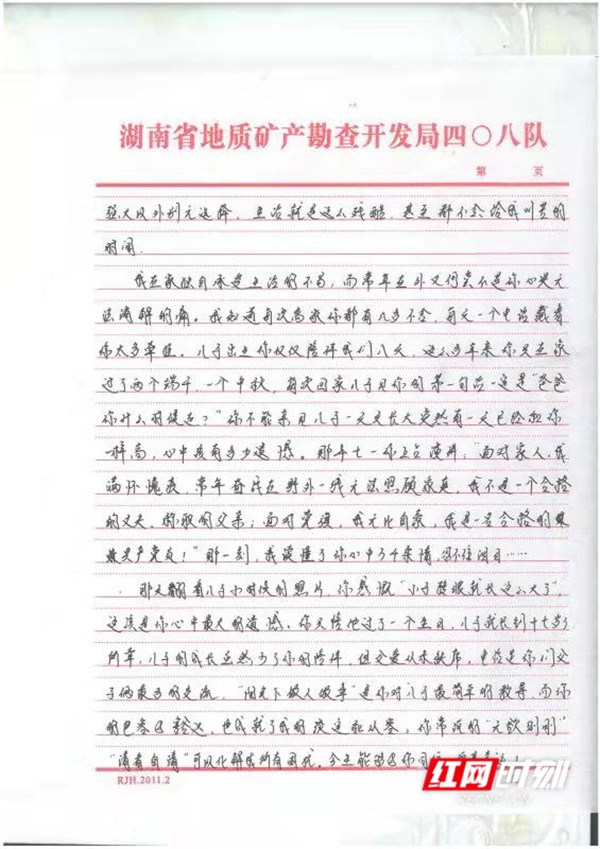 湖南省地质矿产勘查开发局四〇八队
第 页
强大以外别无选择。生活就是这么残酷,甚至都不会给我叫苦的
时间。
我在家独自承受生活的不易,而常年在外又何尝不是你心头无
法消解的痛。我知道每次离家你都有几多不舍,每天一个电话藏着
你太多牵挂。儿子出生你仅仅陪伴我们八天,这么多年来你只在家
过了两个端午、一个中秋,每次回家儿子见你的第一句话一定是“爸爸
你什么时候走?”你不能亲见儿子一天天长大突然有一天已经和你
一样高,心中该有多少遗憾。那年七一你上台演讲:“面对家人,我
满怀愧疚,常年奋战在野外一线无法照顾家庭,我不是一个合格
的丈夫、称职的父亲;面对党旗,我无比自豪,我是一名合格的
共产党员!”那一刻,我读懂了你心中万千柔情,忍不住泪目……
那天翻看儿子小时候的照片,你感慨“小子转眼就长这么大了”,
这该是你心中最大的遗憾。你只陪他过了一个生日,儿子就长到十七岁了
所幸,儿子的成长虽然少了你的陪伴,但父爱从未缺席,电话是你们父
子俩最多的交流,“阳光下做人做事”是你对儿子最简单的教导,而你
的包容与豁达,也成就了我的淡定和从容,你常说的“无欲则刚”
“清者自清”可以化解我所有困扰。今生能
RJH.2011.2
红网时刻